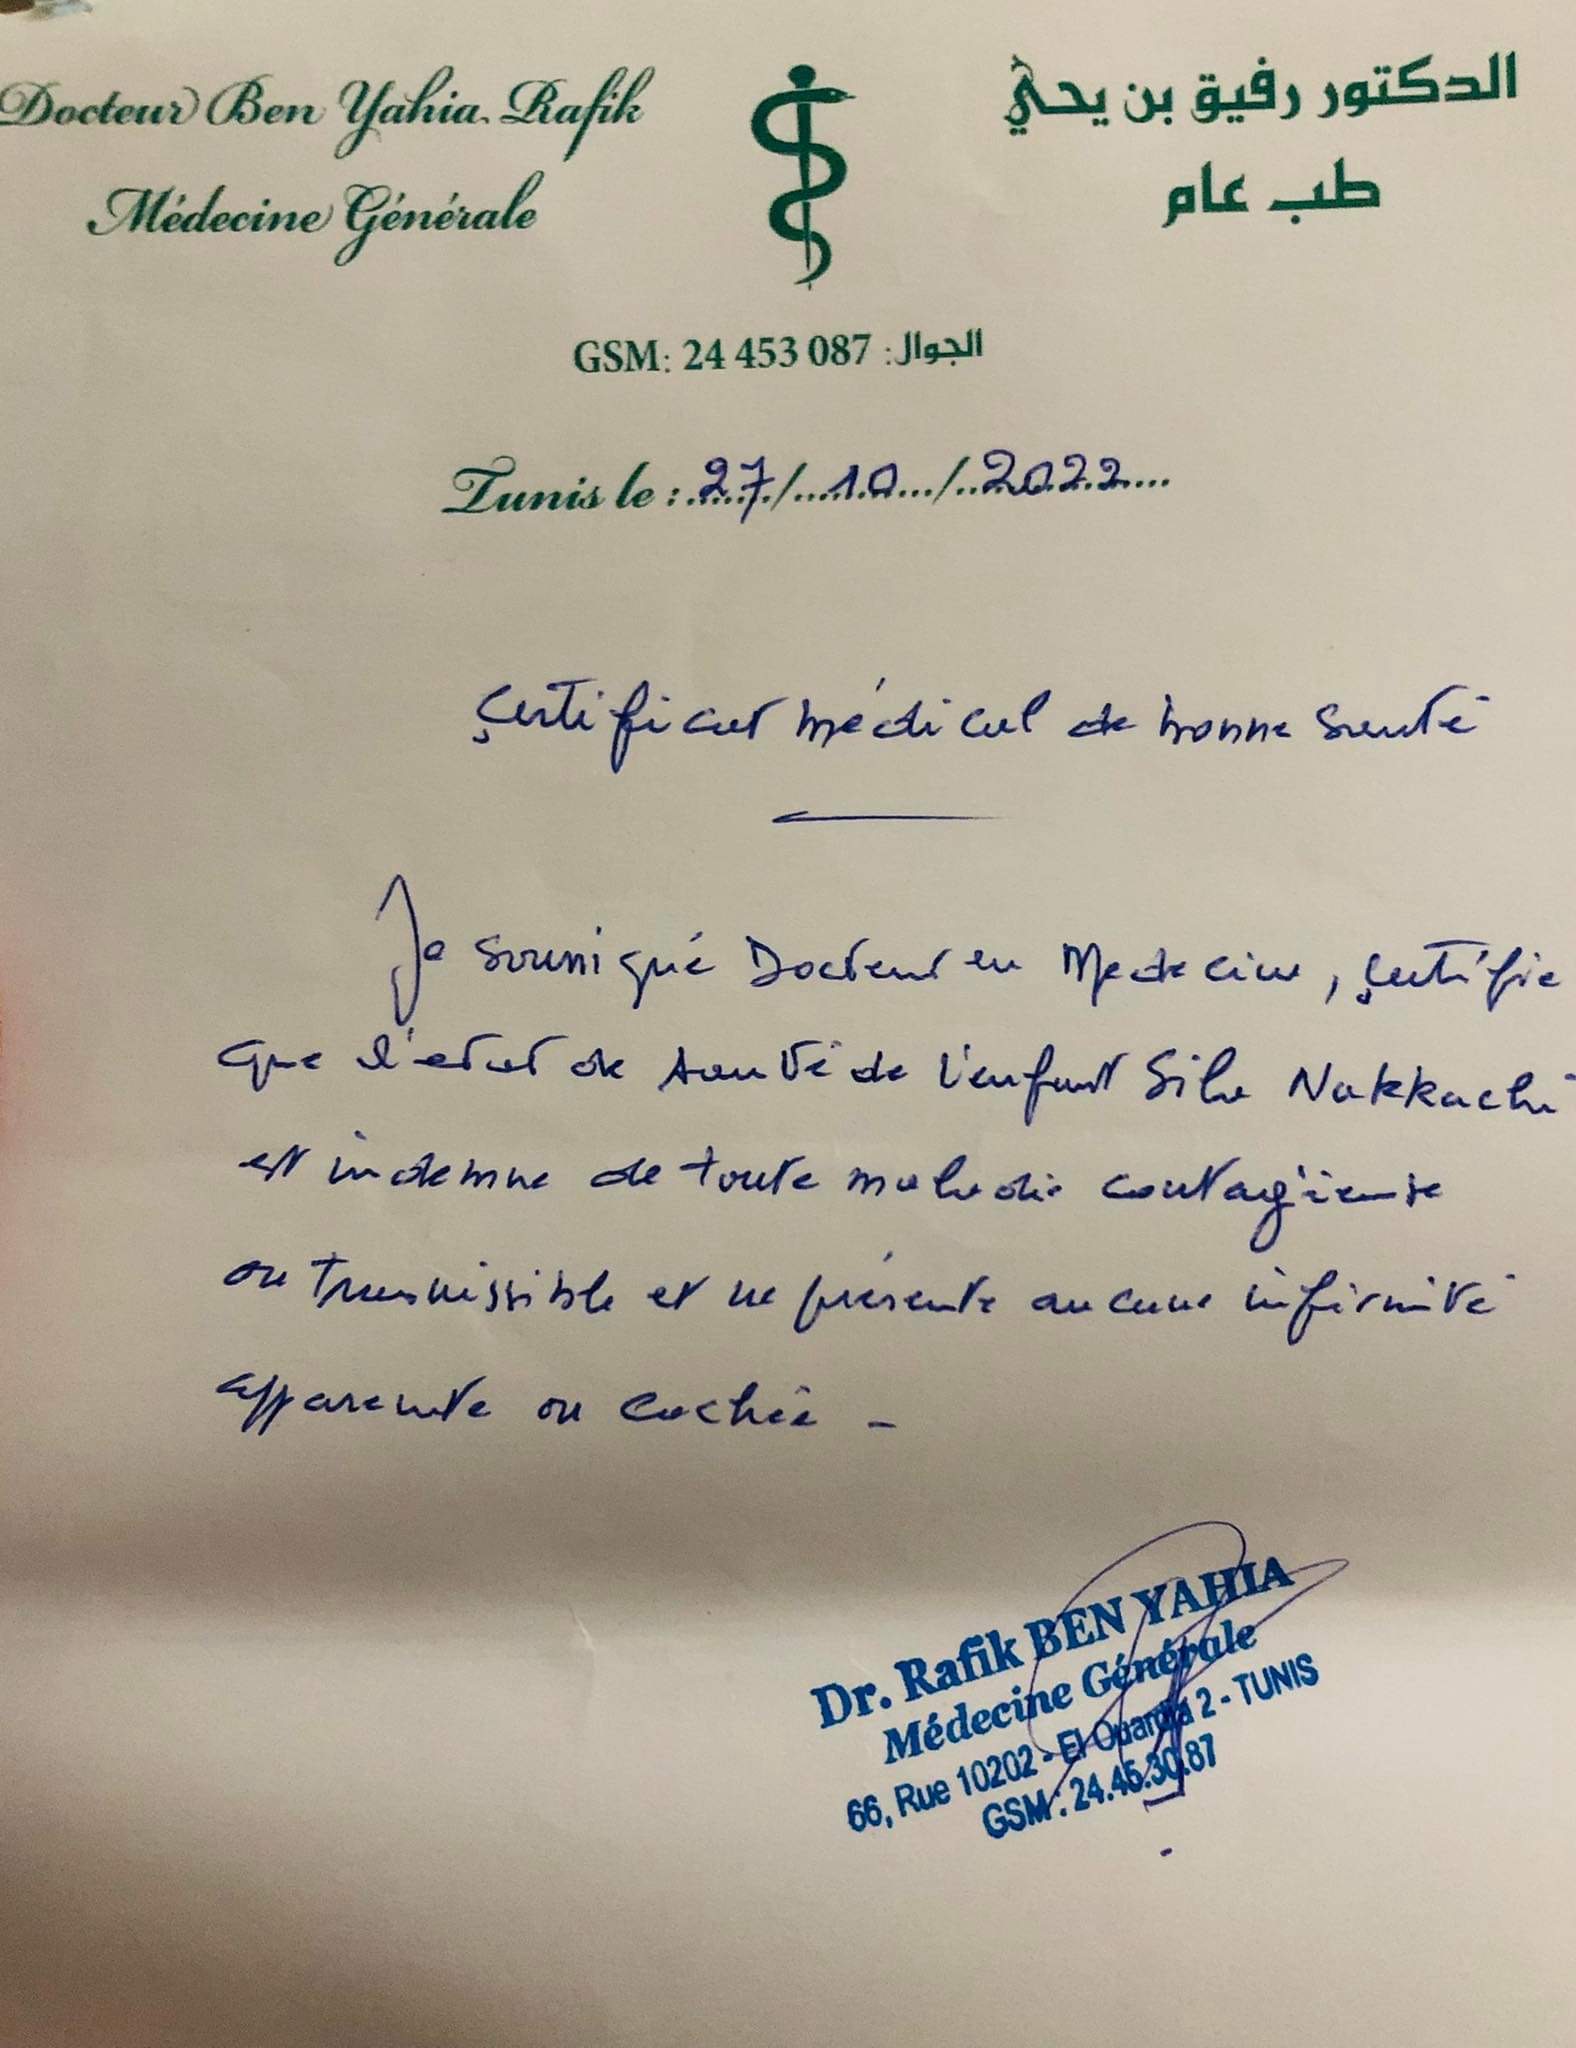 Docteur Ben Yahia Rafik
Médecine Générale
الدكتور رفيق بن يحي
طب عام
GSM: 24 453 087 :الجوال
Tunis le : 27/10/2022
Certificat médical de bonne santé
Je soussigné Docteur en Medecine, certifie
que l'etat de santé de l'enfant Nakkachi
est indemne de toute maladie contagieuse
ou transmissible et ne présente aucune infirmité
apparente ou cachée -
Dr. Rafik BEN YAHIA
Médecine Générale
66, Rue 10202 - El Ouardia 2 - TUNIS
GSM : 24.45.30.87